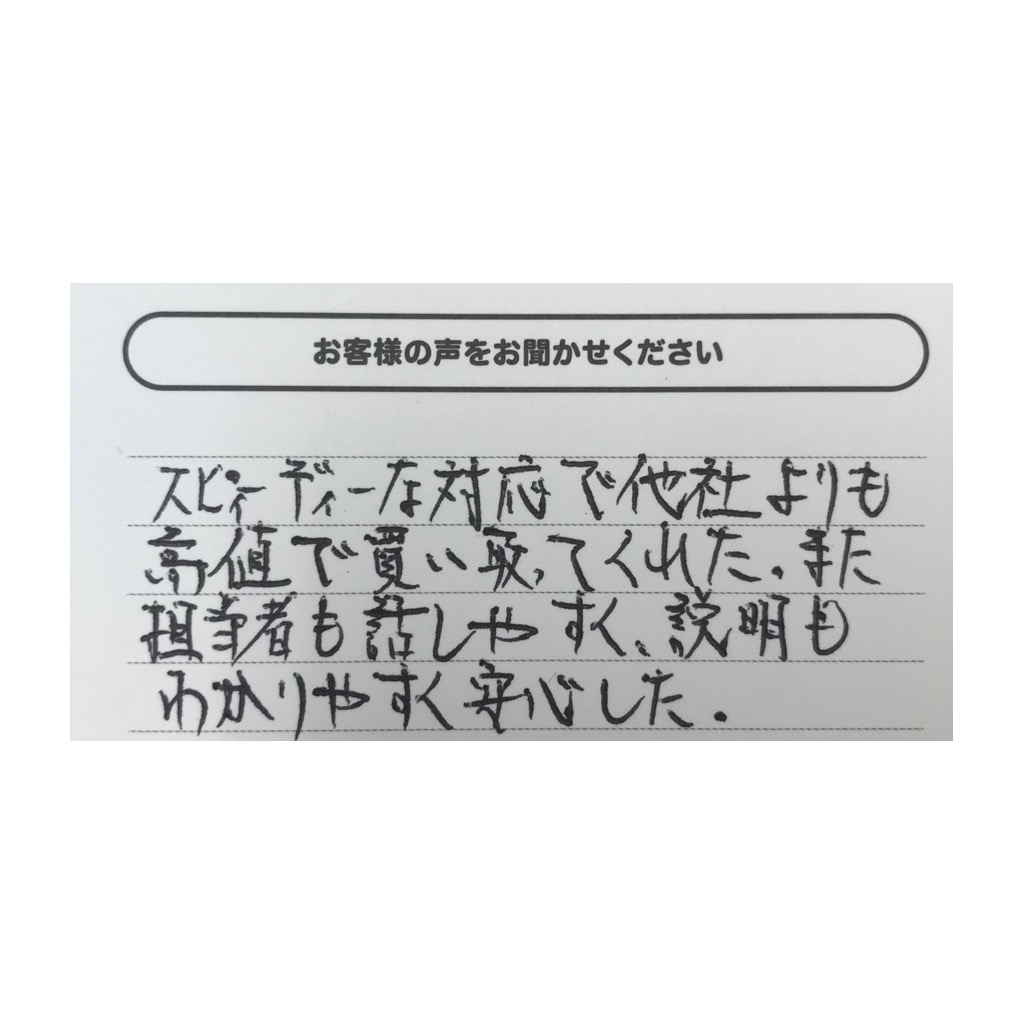 お客様の声をお聞かせください
スピィーディーな対応で他社よりも
高値で買い取ってくれた。また
担当者も話しやすく、説明も
わかりやすく安心した。